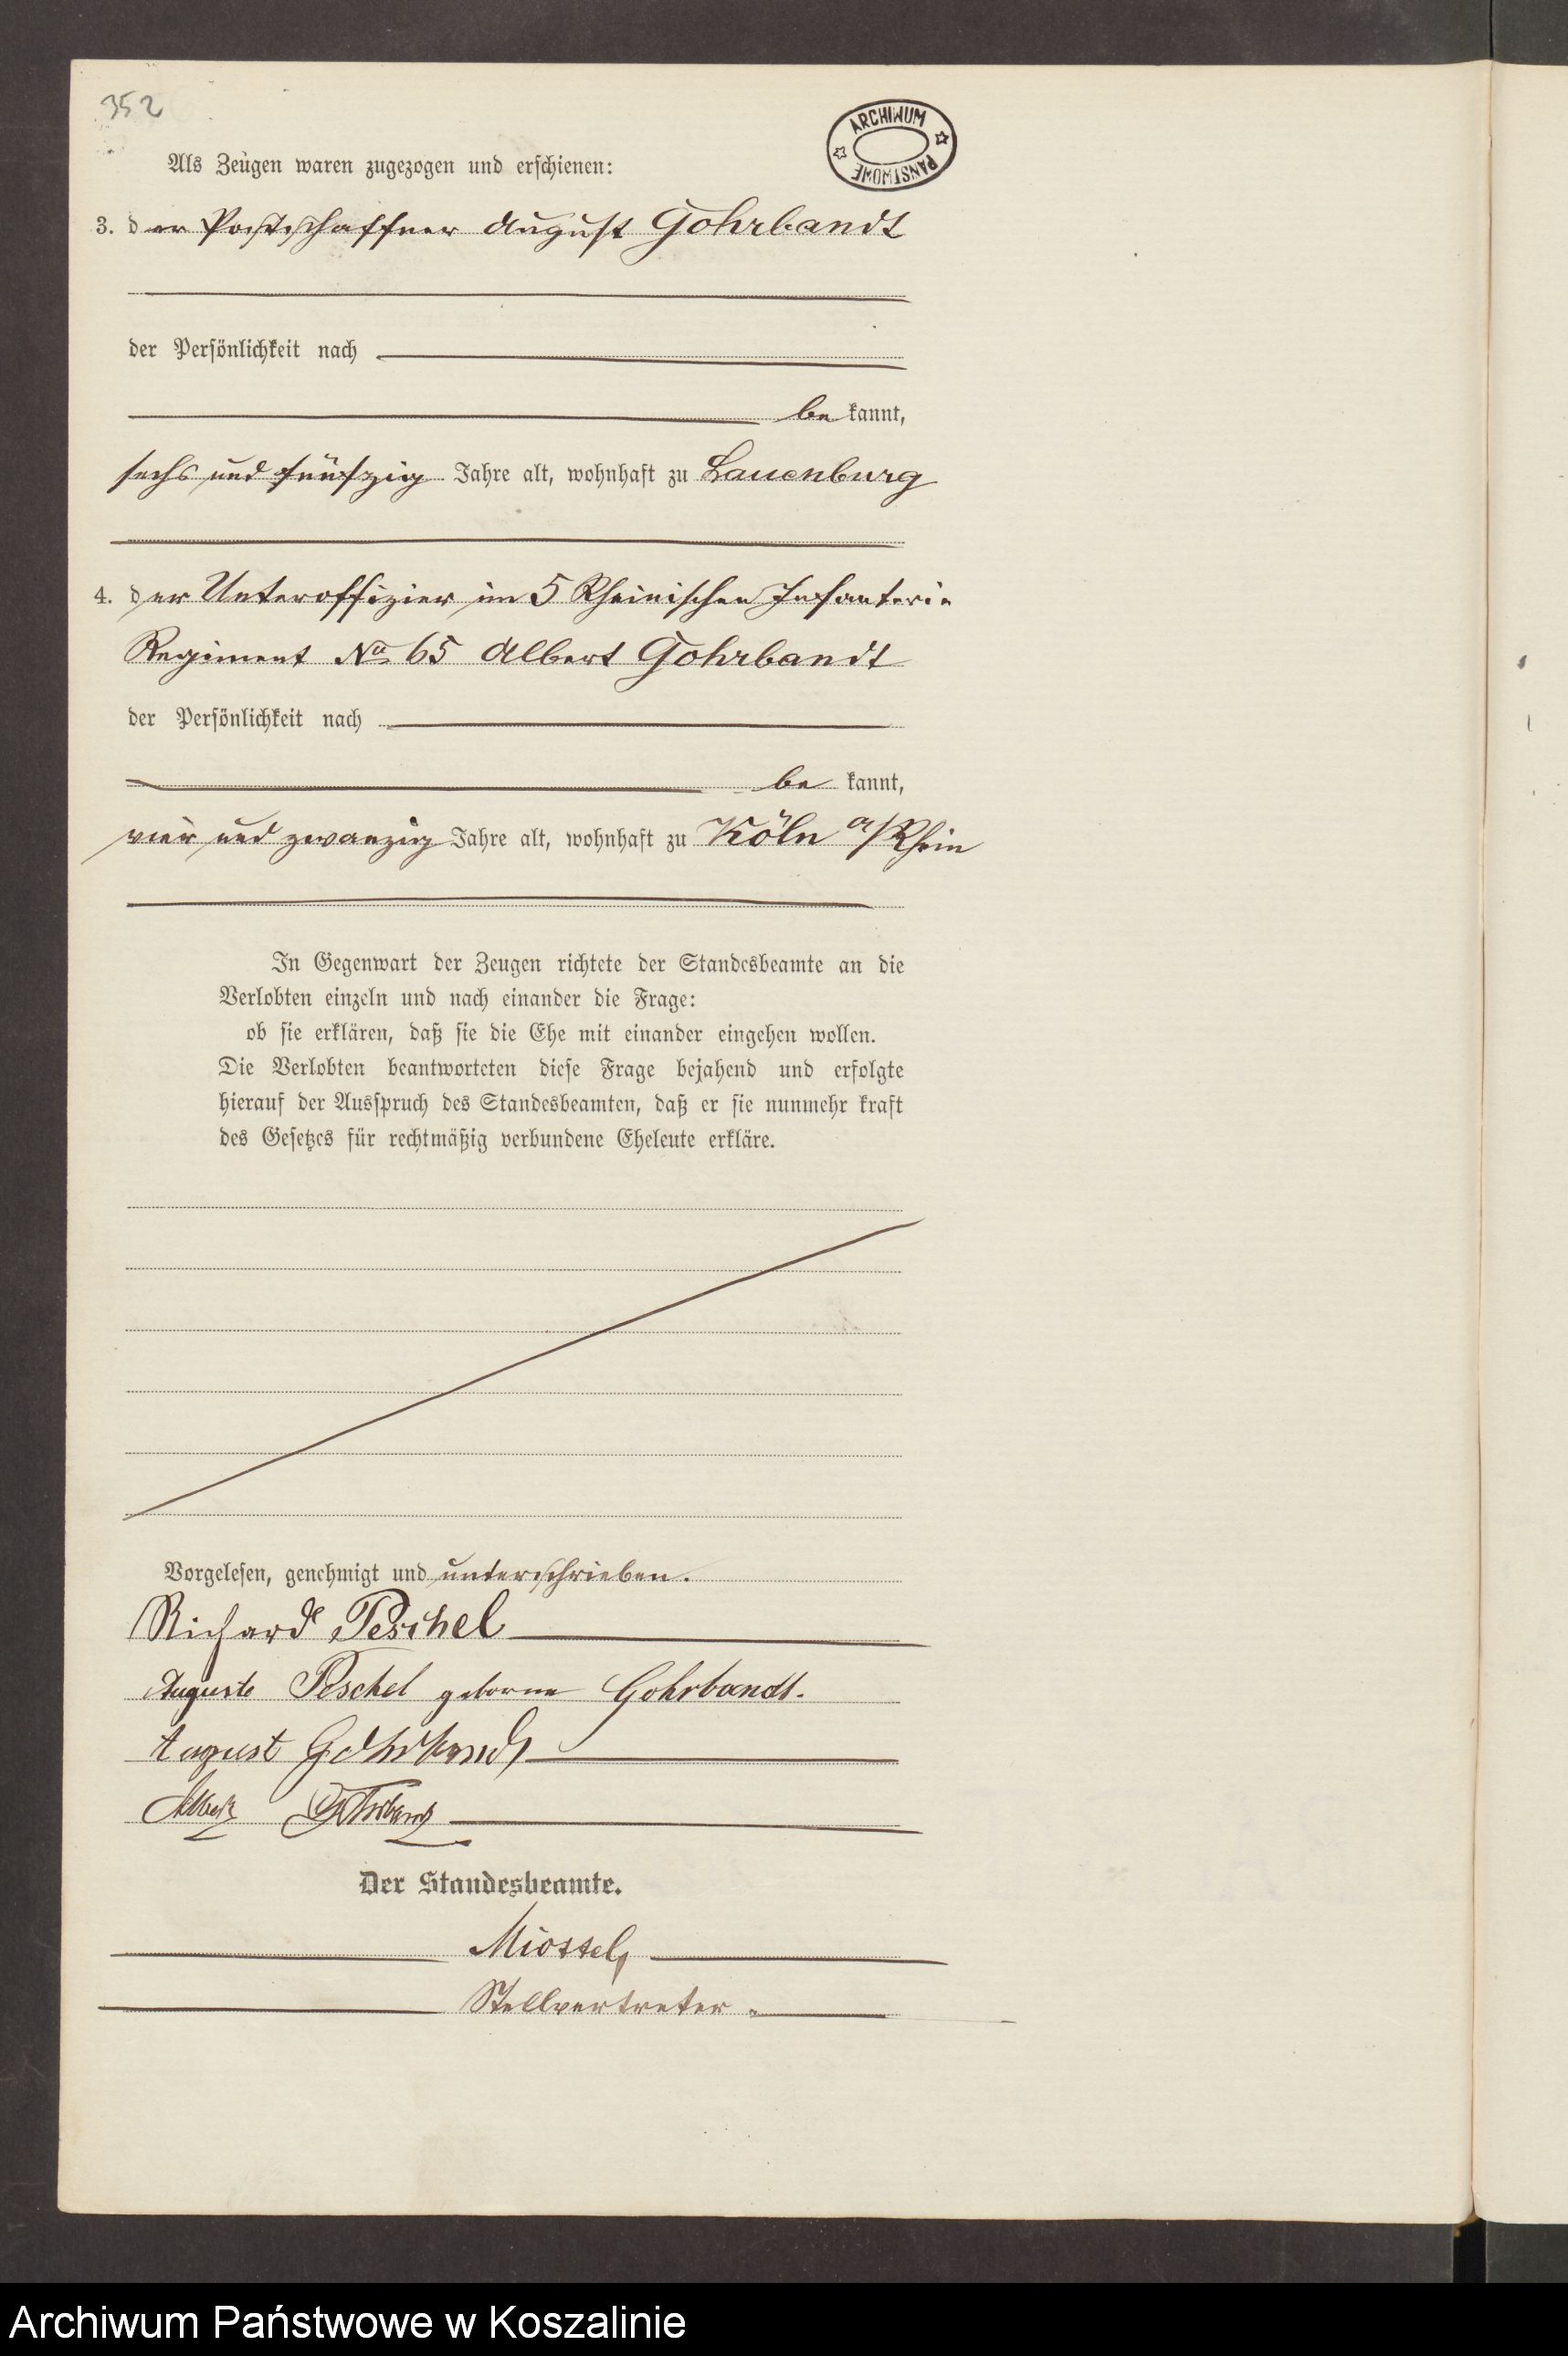 352
ARCHIWUM PAŃSTWOWE
Als Zeugen waren zugezogen und erschienen:
3. der Postschaffner August Gohrbandt
der Persönlichkeit nach
be kannt,
sechs und fünfzig Jahre alt, wohnhaft zu Lauenburg
4. der Unteroffizier im 5 Rheinischen Infanterie
Regiment No 65 Albert Gohrbandt
der Persönlichkeit nach
be kannt,
vier und zwanzig Jahre alt, wohnhaft zu Köln a/Rhein
In Gegenwart der Zeugen richtete der Standesbeamte an die
Verlobten einzeln und nach einander die Frage:
ob sie erklären, daß sie die Ehe mit einander eingehen wollen.
Die Verlobten beantworteten diese Frage bejahend und erfolgte
hierauf der Ausspruch des Standesbeamten, daß er sie nunmehr kraft
des Gesetzes für rechtmäßig verbundene Eheleute erkläre.
Vorgelesen, genehmigt und unterschrieben.
Richard Peschel
Auguste Peschel geborne Gohrbandt.
August Gohrbandt
Albert Gohrbandt
Der Standesbeamte.
Stellvertreter.
Archiwum Państwowe w Koszalinie